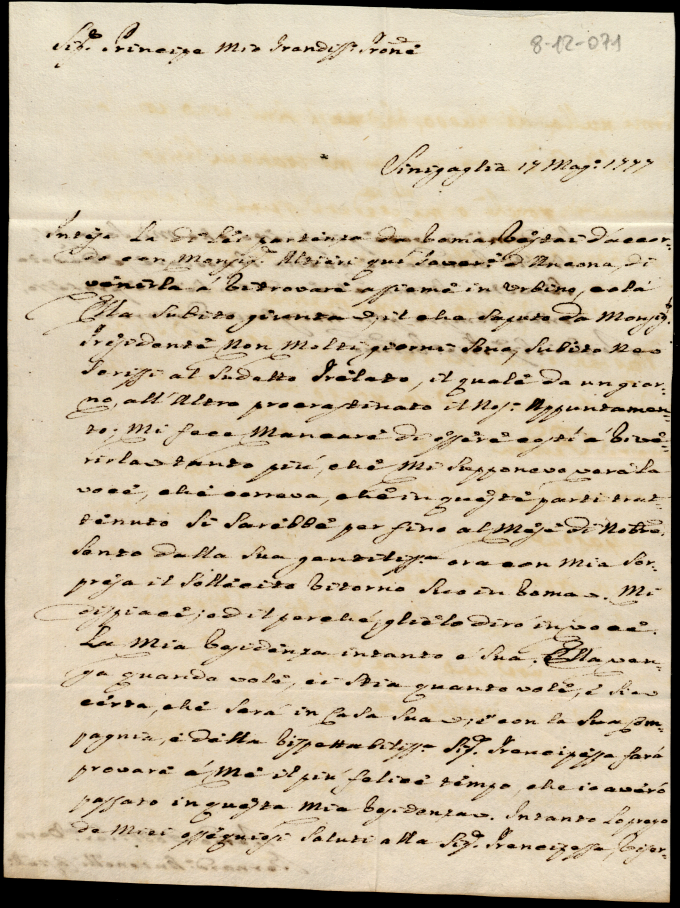 Sig.r Principe Mio Grandiss.o Prone
8-12-071
Sinigaglia 17 Mag.o 1777
Intesa La di Lei partenza da Roma, restai d'accor-
do con Monsig.r Altieri qui Gover.e d'Ancona, di
venirla à ritrovare assieme in Urbino, colà
Ella subito giunta, il che saputo da Monsig.r
Presidente Non Molti giorni sono, subito Ne
scrissi al sudetto Prelato, il quale da un gior-
no, all'Altro procrastinato il Nos.o Appuntamen-
to, Mi fece Mancare di essere costì à rive-
rirla tanto più, che Mi supponevo vera la
voce, che correva, che in queste parti trat-
tenuto si sarebbe per fino al Mese di Nov.re
sento dalla sua gentiliss.a ora con Mia sor-
presa il sollecito ritorno suo in Roma. Mi
dispiace, ed il perchè, glielo dirò in voce.
La Mia residenza intanto è Sua. Ella ven-
ga quando vole, ci stia quanto vole, è sia
certa, che sarà in Casa Sua, è con la sua Com-
pagnia, e della rispettabiliss.a Sig.ra Principessa farà
provare à Me il più felice tempo, che io averò
passato in questa Mia residenza. Intanto La prego
de Miei ossequiosi saluti alla Sig.ra Principessa, riser-